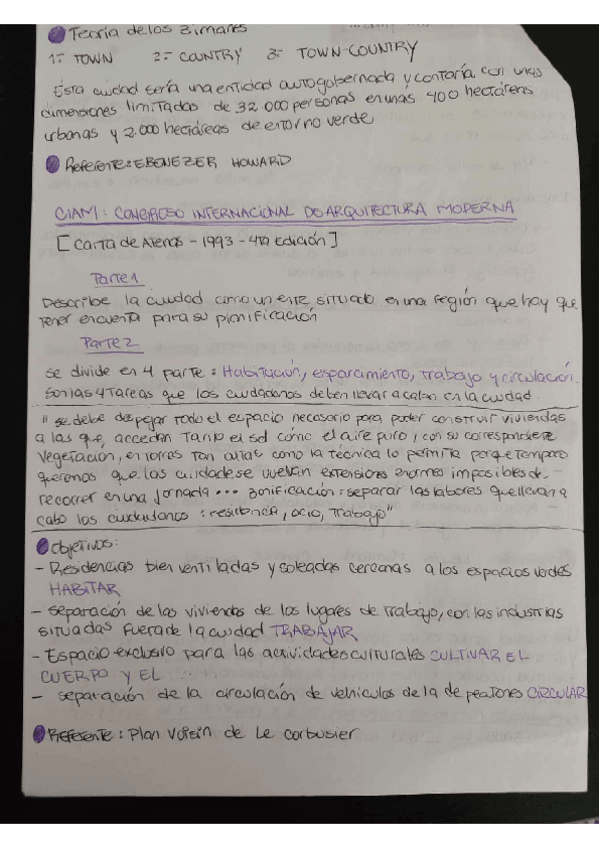 Teoría de los 3 imanes
1:- TOWN 2:- COUNTRY 3:- TOWN-COUNTRY
Esta ciudad sería una entidad autogobernada y contaría con unas
dimensiones limitadas de 32 000 personas en unas 400 hectáreas
urbanas y 2.000 hectáreas de entorno verde
Referente: EBENEZER HOWARD
CIAM: CONGRESO INTERNACIONAL DE ARQUITECTURA MODERNA
[Carta de Atenas - 1993 - 4ta Edición]
Parte 1
Describe la ciudad como un ente situado en una región que hay que
tener en cuenta para su planificación
Parte 2
se divide en 4 parte: Habitación, esparcimiento, trabajo y circulación.
Son las 4 tareas que los ciudadanos deben llevar a cabo en la ciudad.
"se debe despejar todo el espacio necesario para poder construir viviendas
a las que, accedan tanto el sol cómo el aire puro, con su correspondiente
vegetación, en torres tan altas como la técnica lo permita porque tampoco
queremos que las ciudades se vuelvan extensiones enormes imposibles de
recorrer en una jornada... zonificación: separar las labores que llevan a
cabo los ciudadanos: residencia, ocio, trabajo"
Objetivos:
- Residencias bien ventiladas y soleadas cercanas a los espacios verdes
HABITAR
- separación de las viviendas de los lugares de trabajo, con las industrias
situadas fuera de la ciudad TRABAJAR
- Espacio exclusivo para las actividades culturales CULTIVAR EL
CUERPO Y EL
- separación de la circulación de vehículos de la de peatones CIRCULAR
Referente: Plan Voisin de Le Corbusier